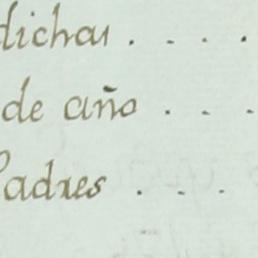 dichas . . . .
de año . . . .
Padres . . . .